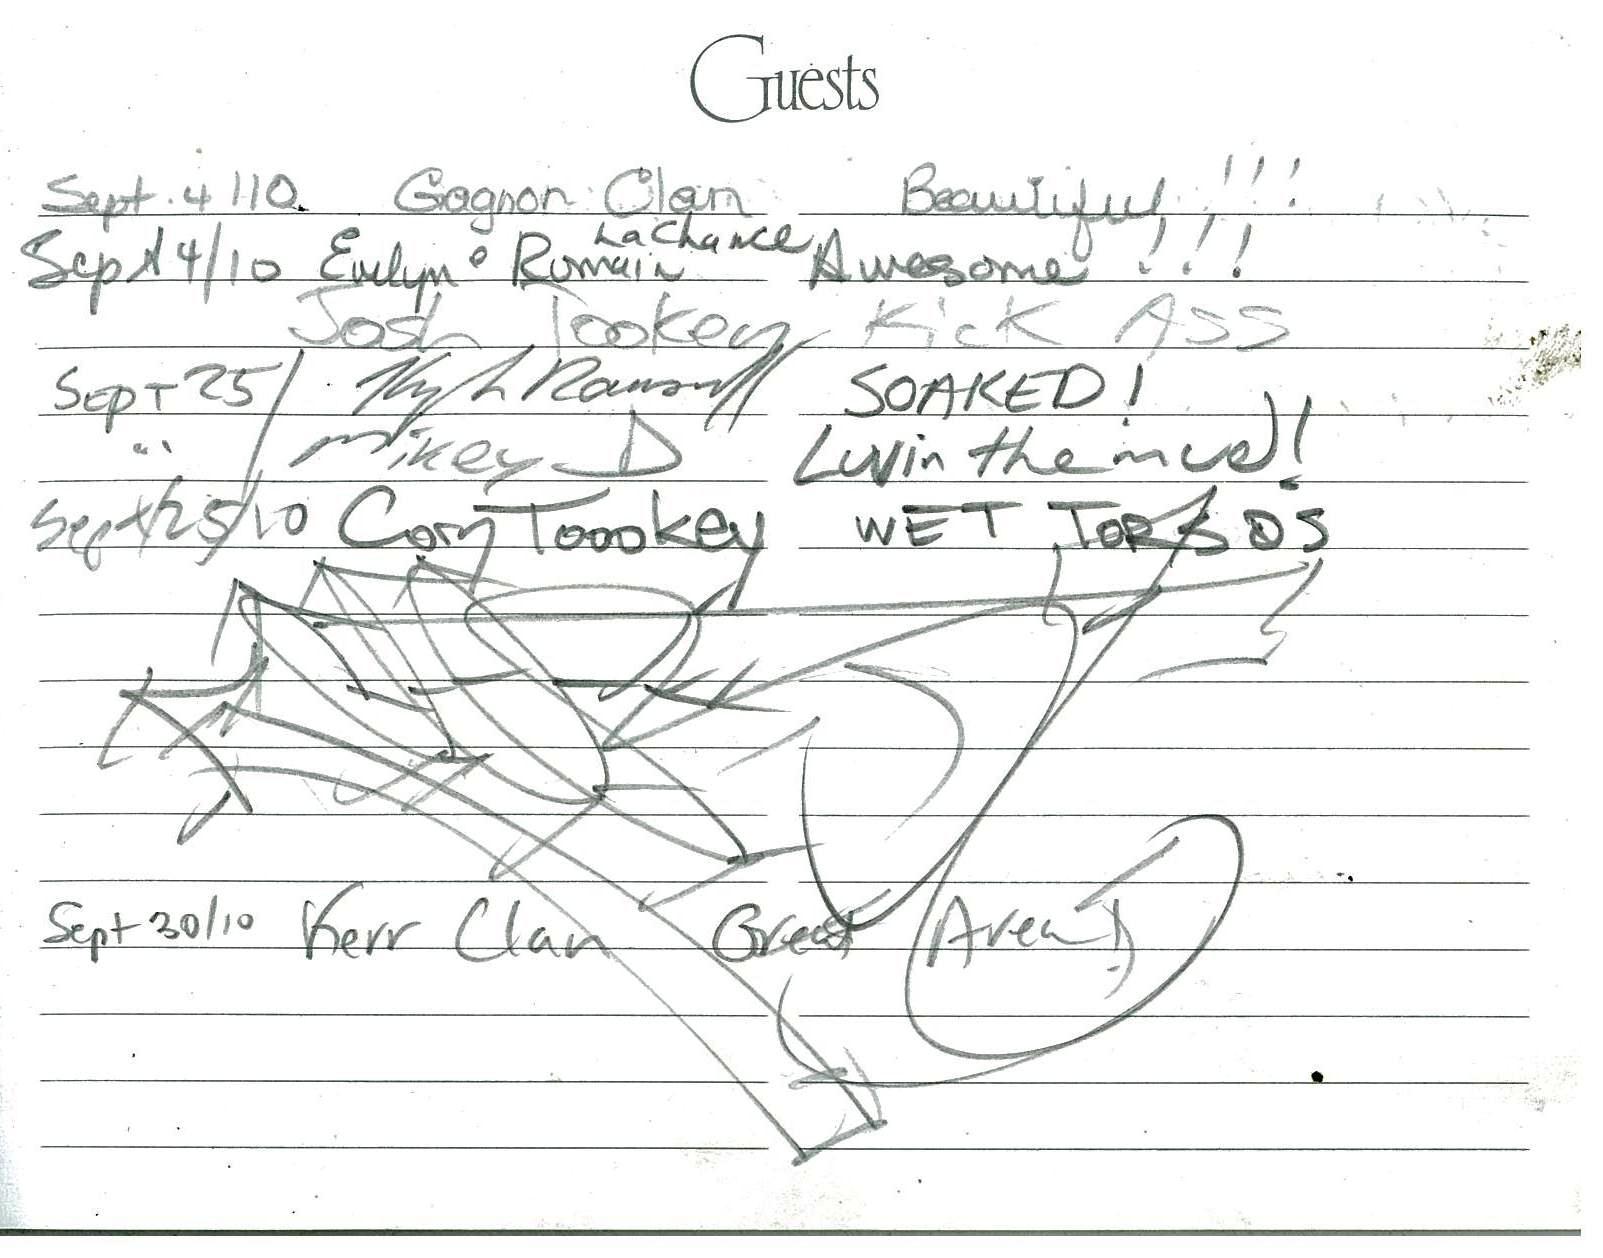 Guests
Sept. 4/10 Gagnon Clan Beautiful!!!
Sept 4/10 Evelyn & Romain LaChance Awesome!!!
Josh Tookey Kick Ass
Sept 25/ SOAKED!
" Mikey D Luvin the mud!
Sept/25/10 Cory Toookey WET TORSOS
Sept 30/10 Kerr Clan Great Area!